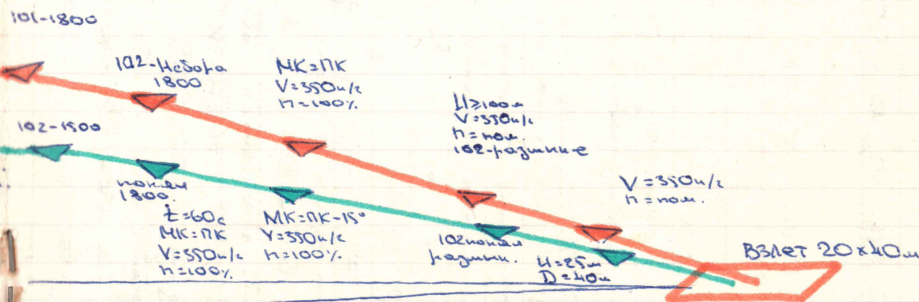 101-1800
102-Набора
1800
МК=ПК
V=350 к/с
n=100%
H≥100м
V=350 к/с
n=ном.
102-размыкание
V=350 к/с
n=ном.
102-1500
понял
1800.
t=60с
МК=ПК
V=350 к/с
n=100%
МК=ПК-15°
V=350 к/с
n=100%
102 понял
размык.
H=25м
D=40м
Взлет 20х40м